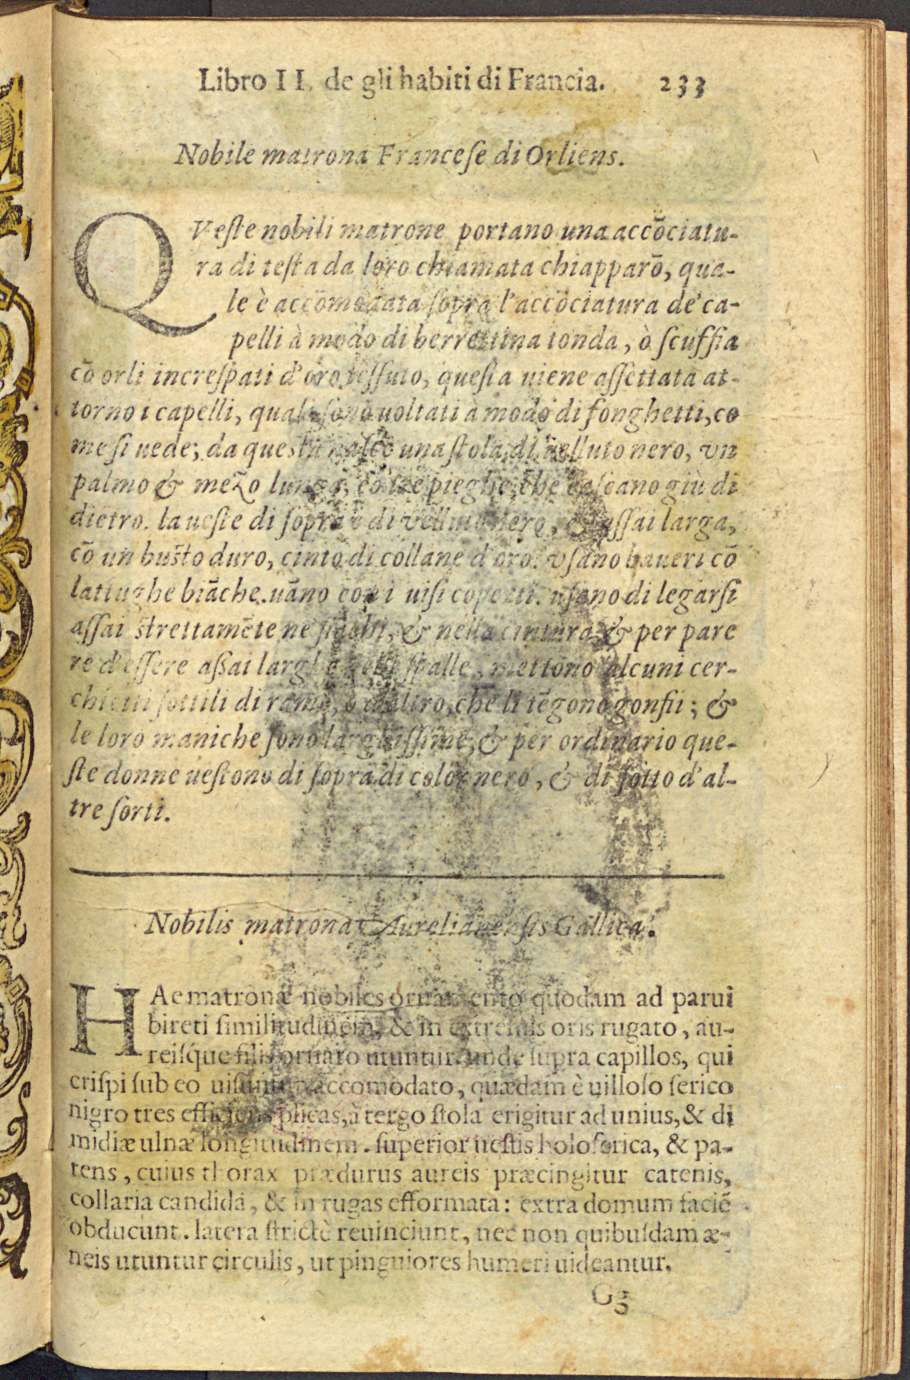 Libro II. de gli habiti di Francia. 233
Nobile matrona Francese di Orliens.
QVeste nobili matrone portano una accōciatu-
ra di testa da loro chiamata chiapparō, qua-
le è accōmodata sopra l'accōciatura de' ca-
pelli à modo di berrettina tonda, ò scuffia
cō orli increspati d'oro tessuto, questa uiene assettata at-
torno i capelli, quali sono uoltati à modo di fonghetti, co
me si uede; da questa una stola di velluto nero, vn
palmo & mezo lunga, cō tre pieghe, che cascano giù di
dietro. la ueste di sopra è di velluto nero, & assai larga,
cō un busto duro, cinto di collane d'oro. vsano baueri cō
latughe biāche. uāno con i uisi coperti. usano di legarsi
assai strettamēte ne fianchi, & nella cintura & per pare
re d'essere assai larghe nelle spalle, mettono alcuni cer-
chietti sottili di rame, che li tēgono gonfii; &
le loro maniche sono larghissime, & per ordinario que-
ste donne uestono di sopra di color nero, & di sotto d'al-
tre sorti.
Nobilis matrona Aurelianensis Gallica.
HAe matronæ nobiles ornamento quodam ad parui
bireti similitudinem, & in extremis oris rugato, au-
reisque filis ornato utuntur. unde supra capillos, qui
crispi sub eo uisuntur accomodato, quædam è uilloso serico
nigro tres efficiens plicas, à tergo stola erigitur ad unius, & di
midiæ ulnæ longitudinem. superior uestis holoserica, & pa-
tens, cuius thorax prædurus aureis præcingitur catenis,
collaria candida, & in rugas efformata: extra domum faciē
obducunt. latera strictè reuinciunt, nec non quibusdam æ-
neis utuntur circulis, ut pinguiores humeri uideantur.
Gg